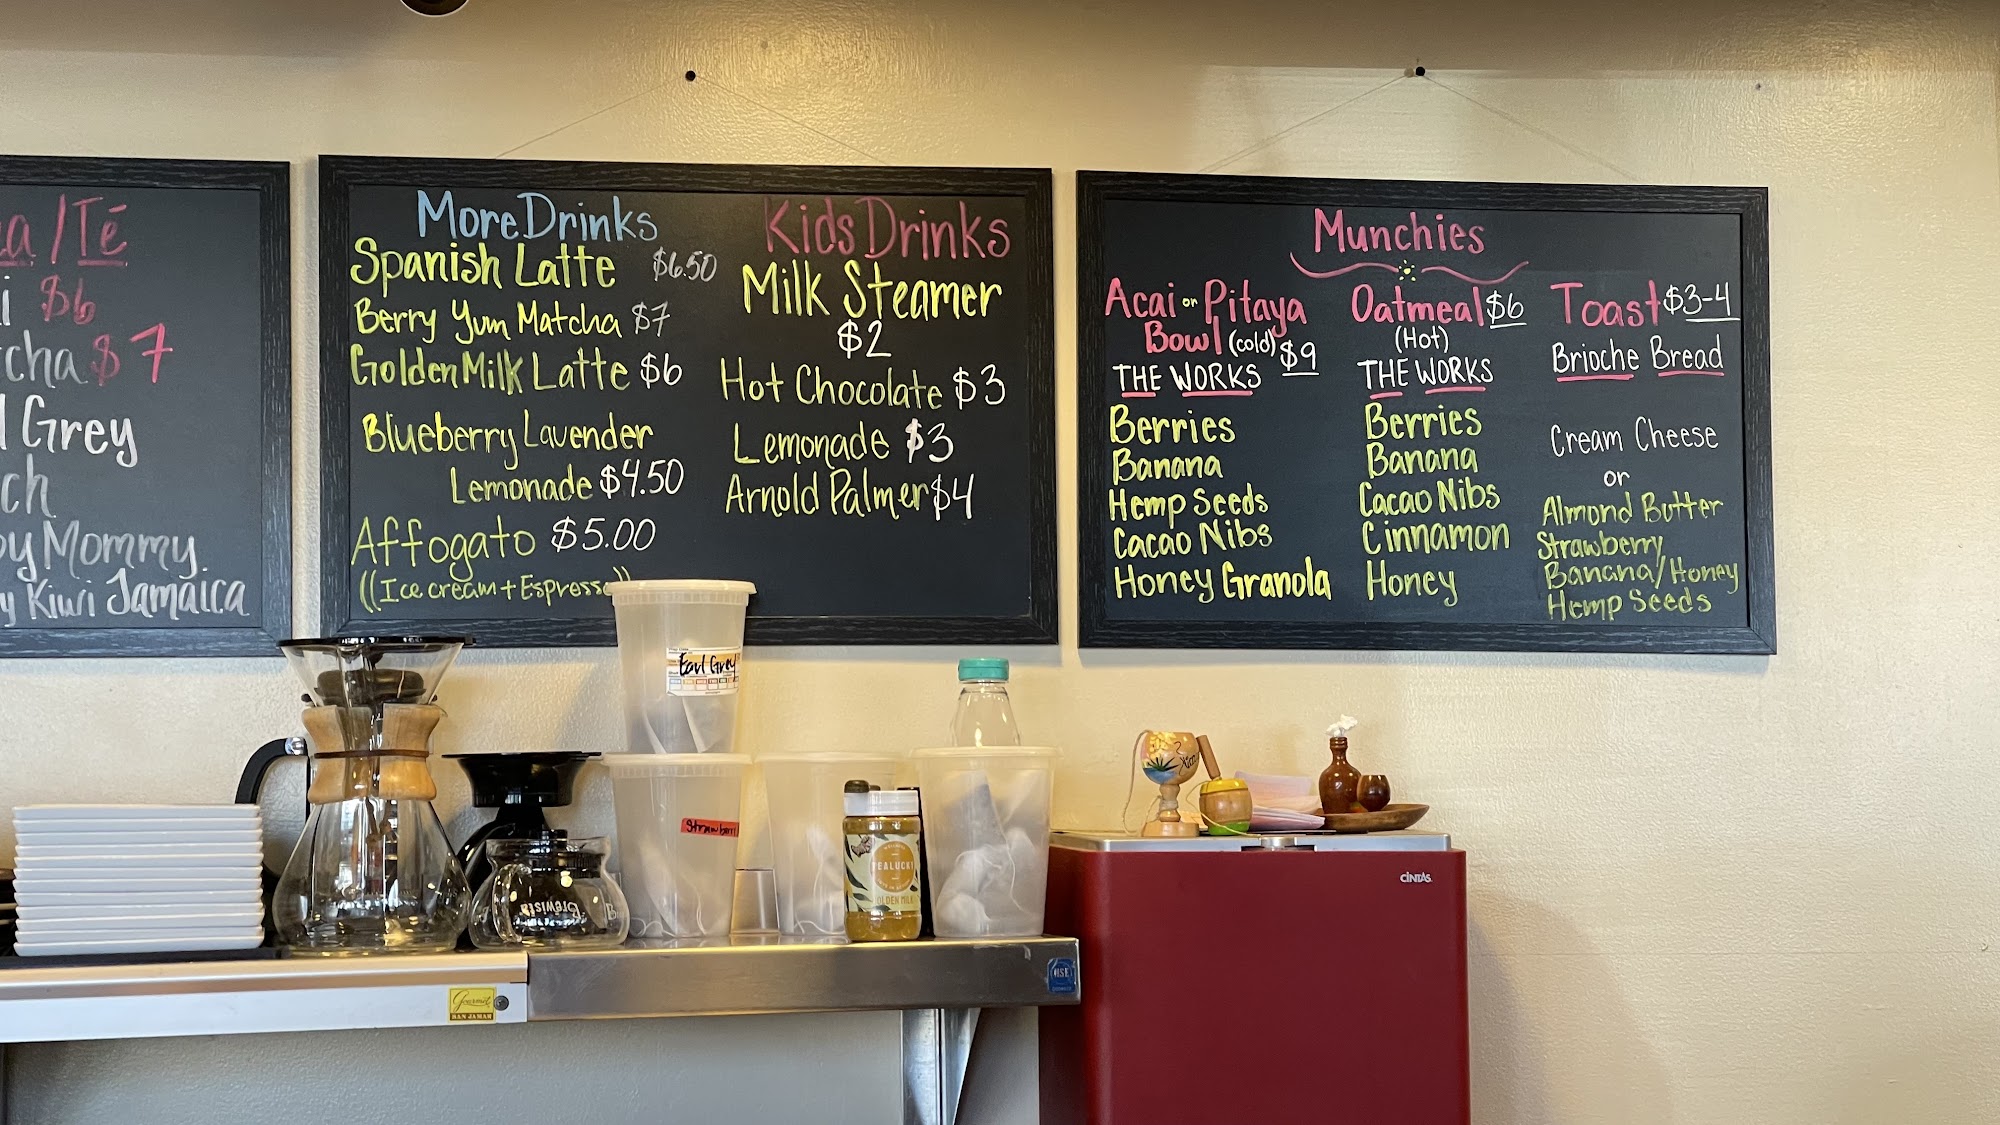 /Té
$6
$7
Grey
Mommy
Kiwi Jamaica
More Drinks
Spanish Latte $6.50
Berry Yum Matcha $7
Golden Milk Latte $6
Blueberry Lavender
Lemonade $4.50
Affogato $5.00
((Ice cream + Espresso))
Kids Drinks
Milk Steamer
$2
Hot Chocolate $3
Lemonade $3
Arnold Palmer $4
Munchies
Acai or Pitaya
Bowl (cold) $9
THE WORKS
Berries
Banana
Hemp Seeds
Cacao Nibs
Honey Granola
Oatmeal $6
(Hot)
THE WORKS
Berries
Banana
Cacao Nibs
Cinnamon
Honey
Toast $3-4
Brioche Bread
Cream Cheese
or
Almond Butter
Strawberry,
Banana/Honey
Hemp Seeds
Earl Grey
Brewista
TEALUCK
GOLDEN MILK
CINTAS
Gourmet
SAN JAMAR